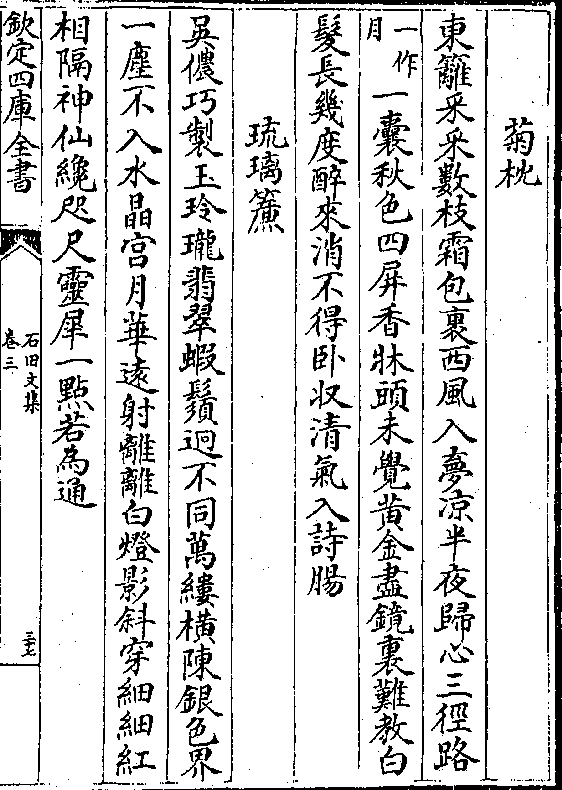 菊枕
東籬采采數枝霜包裹西風入夢凉半夜歸心三徑路
一作
月
一囊秋色四屏香牀頭未覺黄金盡鏡裏難教白
髮長幾度醉來消不得卧收清氣入詩腸
琉璃簾
吳儂巧製玉玲瓏翡翠蝦鬚迥不同萬縷横陳銀色界
一塵不入水晶宫月華遠射離離白燈影斜穿細細紅
相隔神仙纔咫尺靈犀一點若為通
欽定四庫全書
石田文集
卷三
三七